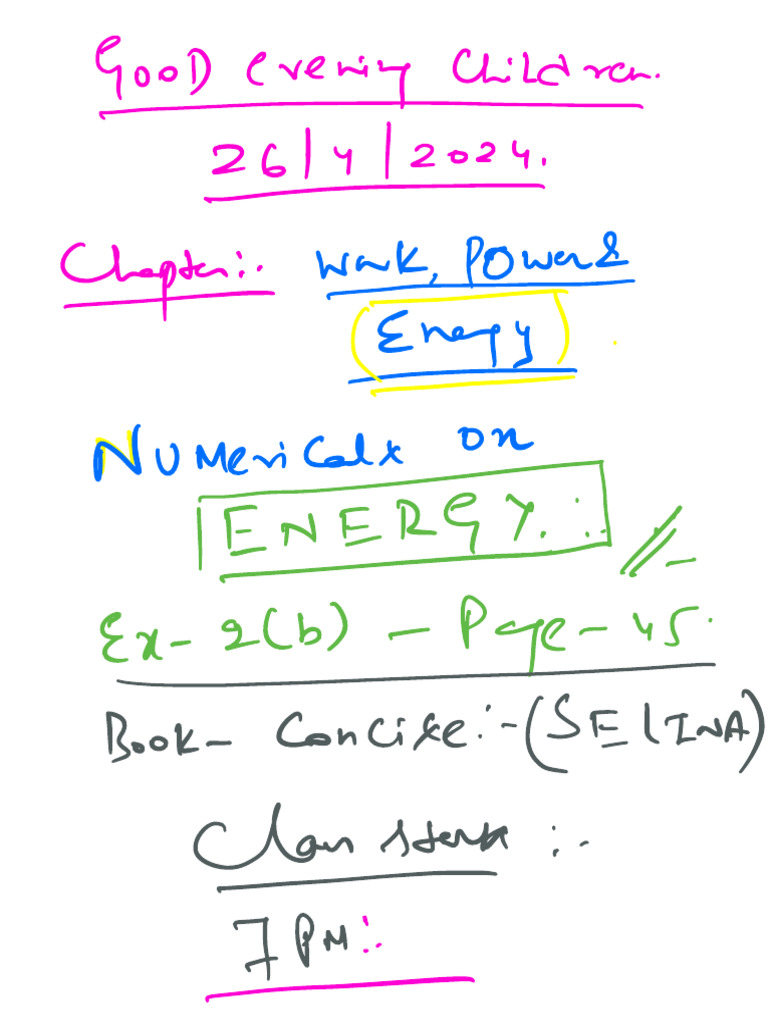 GOOD Evening Children.
26/4/2024.
Chapter:. Work, Power &
(Energy)
Numericals on
ENERGY.:
Ex-2(b) - Page-45.
Book- Concise:-(SELINA)
Class starts :-
7 PM: